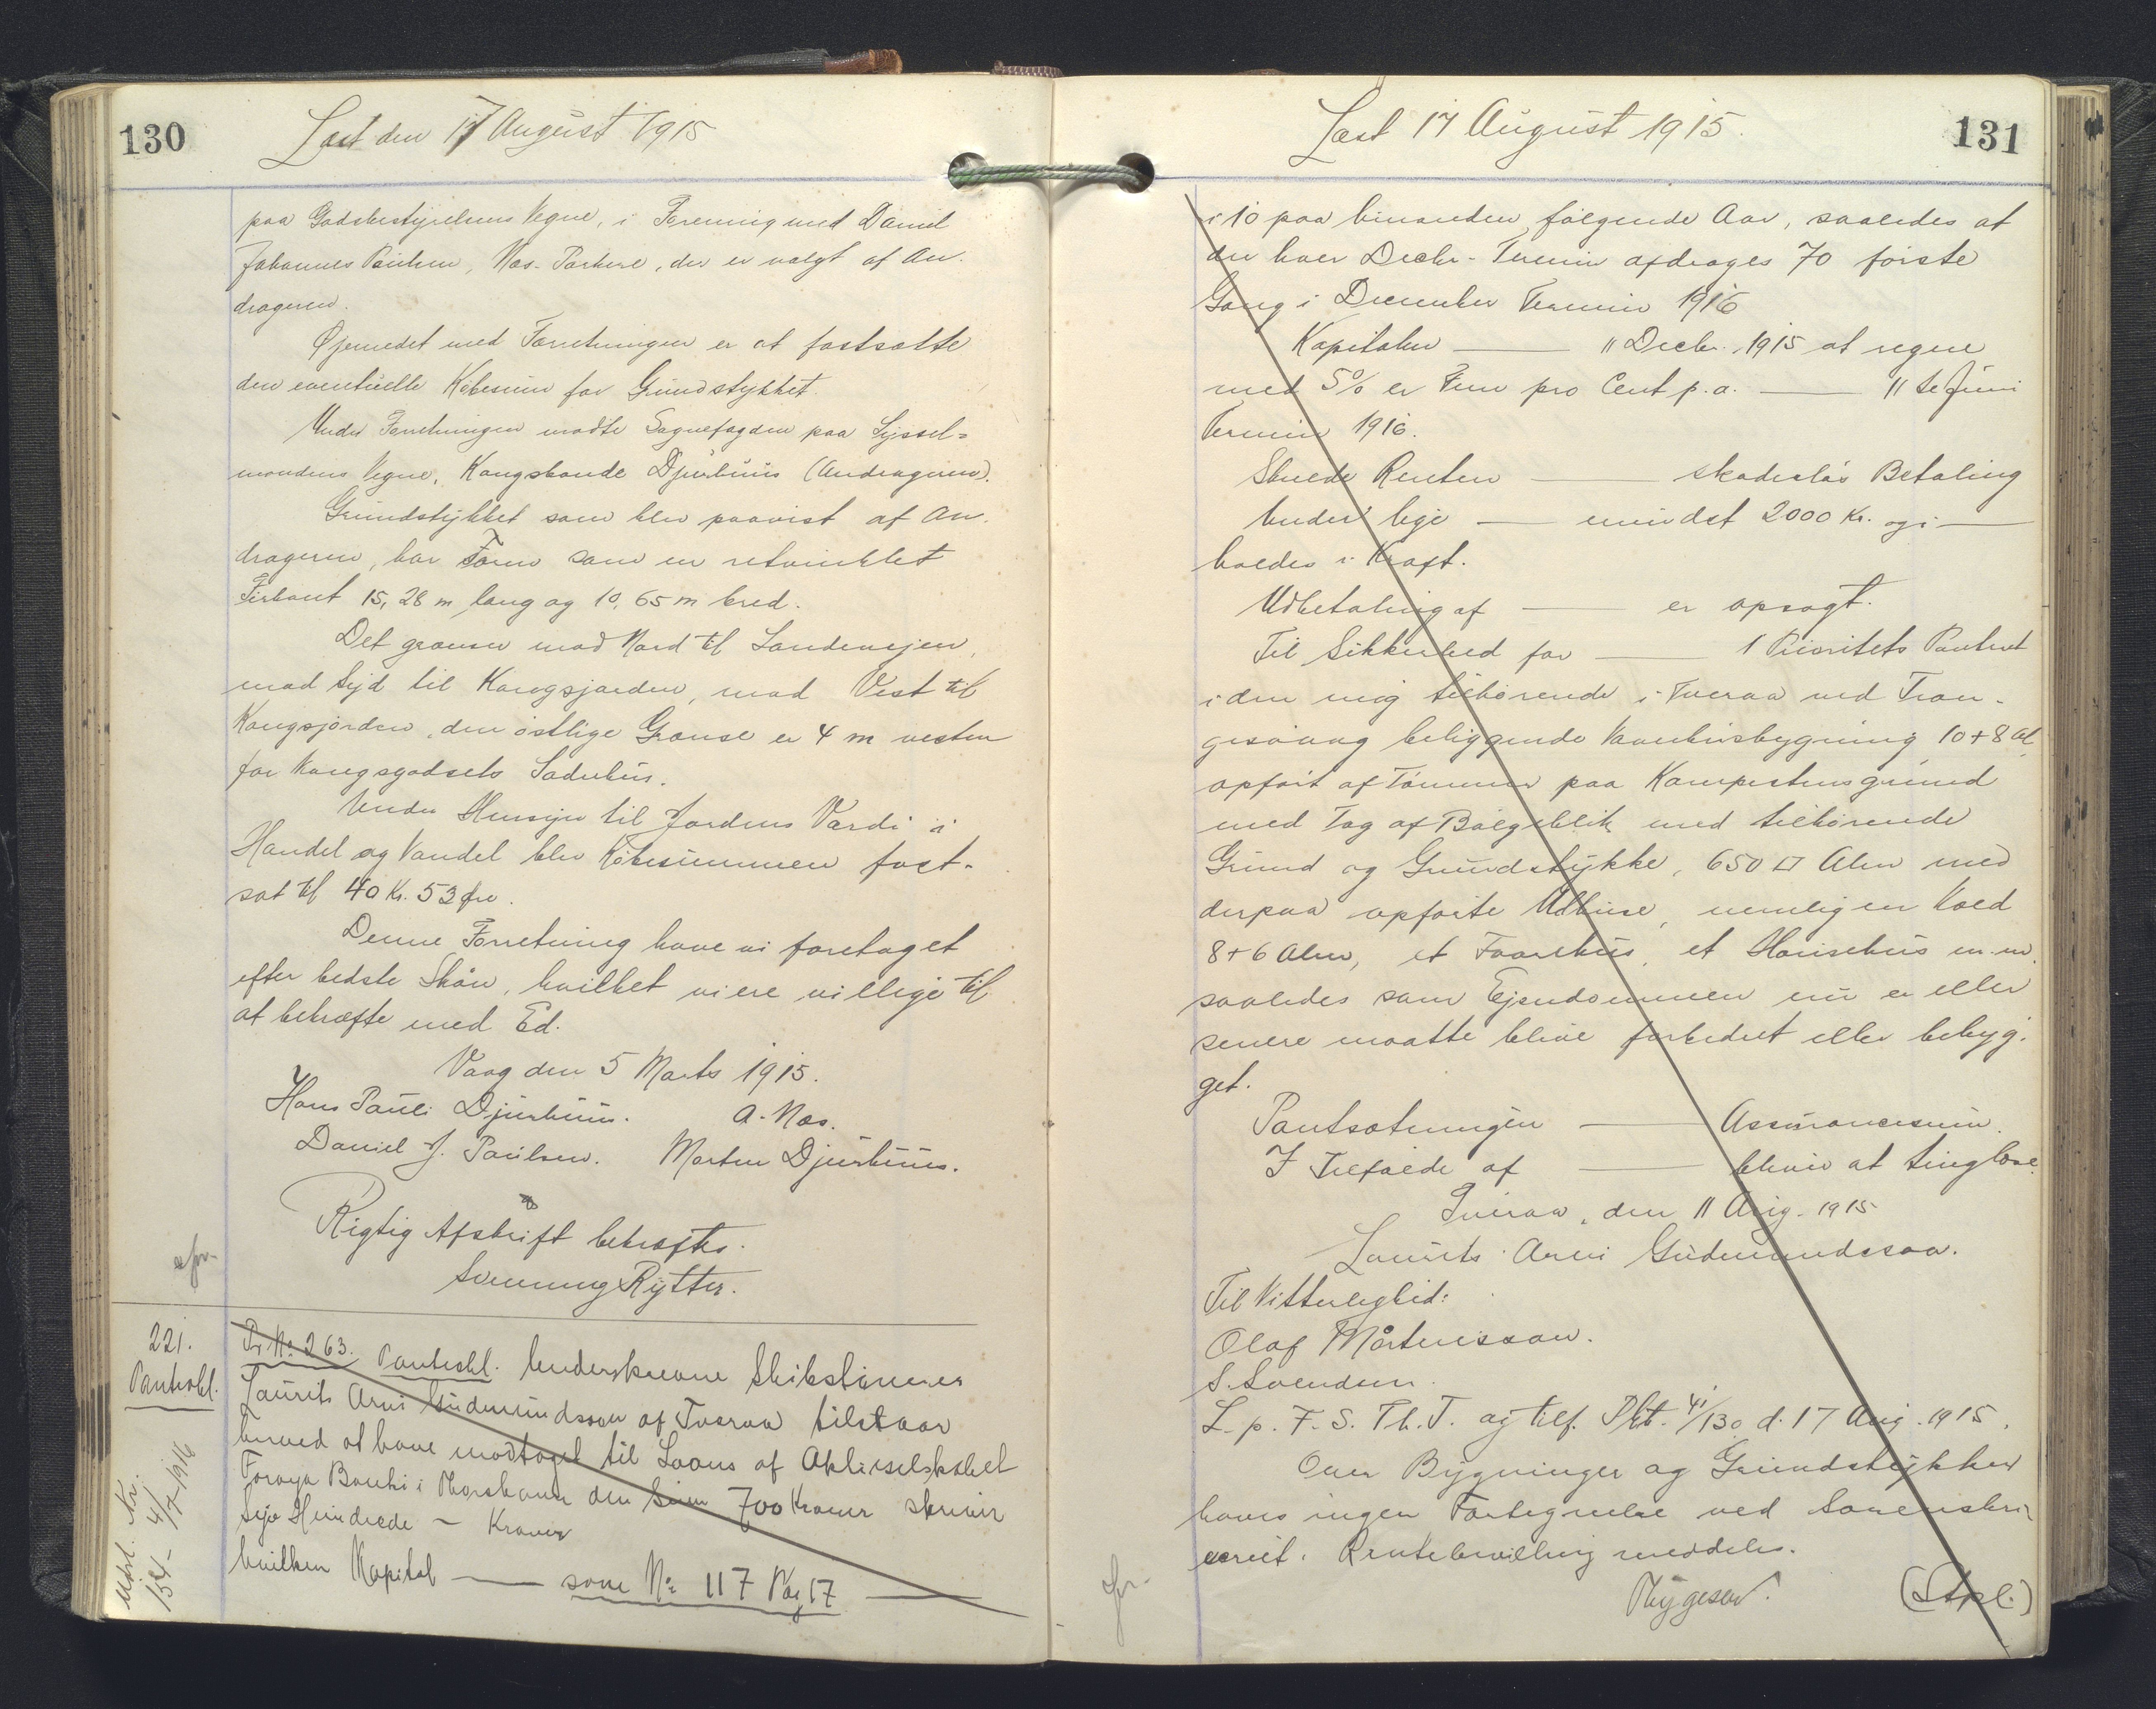 130
Læst den 17 August 1915
paa Godsbestyrelsens Vegne, i Forening med Daniel
Johannes Poulsen, Næs-Porkere, der er valgt af An-
drageren.
Øjemedet med Forretningen er at fastsætte
den eventuelle Købesum for Grundstykket.
Under Forretningen mødte Sognefogden paa Syssel-
mandens Vegne, Kongsbonde Djurhuus (Andrageren).
Grundstykket som blev paavist af An-
drageren, har Form som en retvinklet
Firkant 15,28 m lang og 10,65 m bred.
Det grænser mod Nord til Landevejen,
mod Syd til Kongsjorden, mod Vest til
Kongsjorden, den østlige Grænse er 4 m vesten
for Kongsgodsets Ladehus.
Under Hensyn til Jordens Værdi i
Handel og Vandel blev Købesummen fast-
sat til 40 Kr. 53 Øre.
Denne Forretning have vi foretaget
efter bedste Skøn, hvilket vi ere villige til
at bekræfte med Ed.
Vaag den 5 Marts 1915.
Hans Pauli Djurhuus. A. Næs.
Daniel J. Poulsen. Morten Djurhuus.
Rigtig Afskrift bekræftes.
Svenning Rytter.
221.
Panteobl.
Udsl. Nr.
154 - 4/7-1916
Pr. No. 263. Panteobl. Underskrevne Skibstømrer
Laurits Arni Gudmundsson af Tveraa tilstaar
herved at have modtaget til Laans af Aktieselskabet
Føroya Banki i Thorshavn den Sum 700 Kroner skriver
Syv Hundrede - Kroner
hvilken Kapital — som No 117 Pag 17 —
Læst 17 August 1915.
131
i 10 paa hinanden følgende Aar, saaledes at
der hver Decbr-Termin afdrages 70 første
Gang i December Termin 1916
Kapitalen — 11 Decbr. 1915 at regne
med 5% er Fem pro Cent p.a. — 11te Juni
Termin 1916.
Skulde Renten — skadesløs Betaling
Under lige — mindst 2000 Kr. og i —
holdes i Kraft.
Udbetaling af — er opsagt.
Til Sikkerhed for — 1 Prioritets Panteret
i den mig tilhørende i Tveraa ved Tran-
gisvaag beliggende Vaanhusbygning, 10+8 Al.
opført af Tømmer paa Kampestensgrund
med Tag af Bølgeblik med tilhørende
Grund og Grundstykke, 650 □ Alen med
derpaa opførte Udhuse, nemlig en Koed
8+6 Alen, et Faarehus, et Hønsehus m.m.
saaledes som Ejendommen nu er eller
senere maatte blive forbedret eller bebyg-
get.
Pantsætningen — Assurancesum.
I Tilfælde af — bliver at tinglæse.
Tveraa, den 11 Aug. 1915
Laurits Arni Gudmundsson.
Til Vitterlighed:
Olaf Mårtensson.
S. Svendsen.
L. p. F. S. Th. T. og tilf. Pkt. 41/130 d. 17 Aug. 1915.
Over Bygninger og Grundstykker
haves ingen Fortegnelse ved Sorenskri-
veriet. Rentebevilling meddeles.
Thygesen.
(Stpl.)